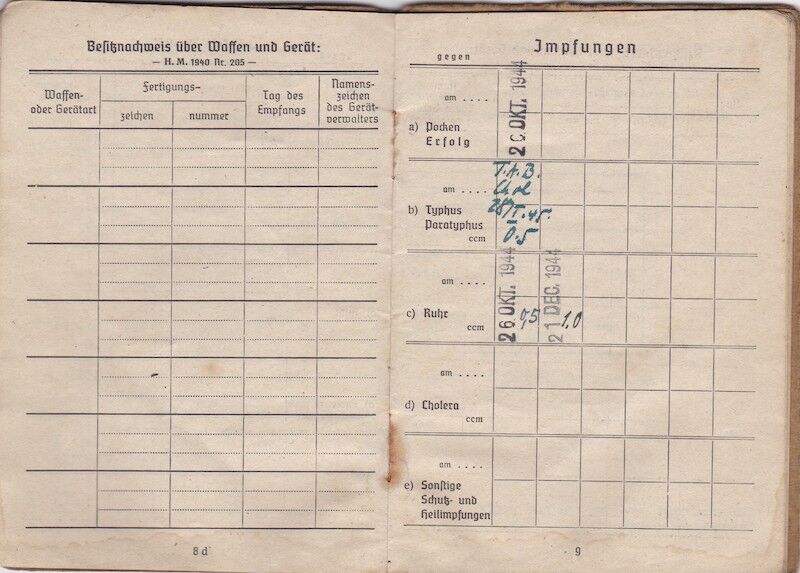 Besitznachweis über Waffen und Gerät:
— H. M. 1940 Nr. 205 —
Waffen-
oder Gerätart
Fertigungs-
zeichen
nummer
Tag des
Empfangs
Namens-
zeichen
des Gerät-
verwalters
8 d
Impfungen
gegen
am . . . .
a) Pocken
Erfolg
OKT. 1944
am . . . .
b) Typhus
Paratyphus
ccm
T.A.B.
Chol
0.5
am . . . .
c) Ruhr
ccm
26 OKT. 1944
0,5
21 DEC. 1944
1.0
am . . . .
d) Cholera
ccm
am . . . .
e) Sonstige
Schutz- und
Heilimpfungen
9